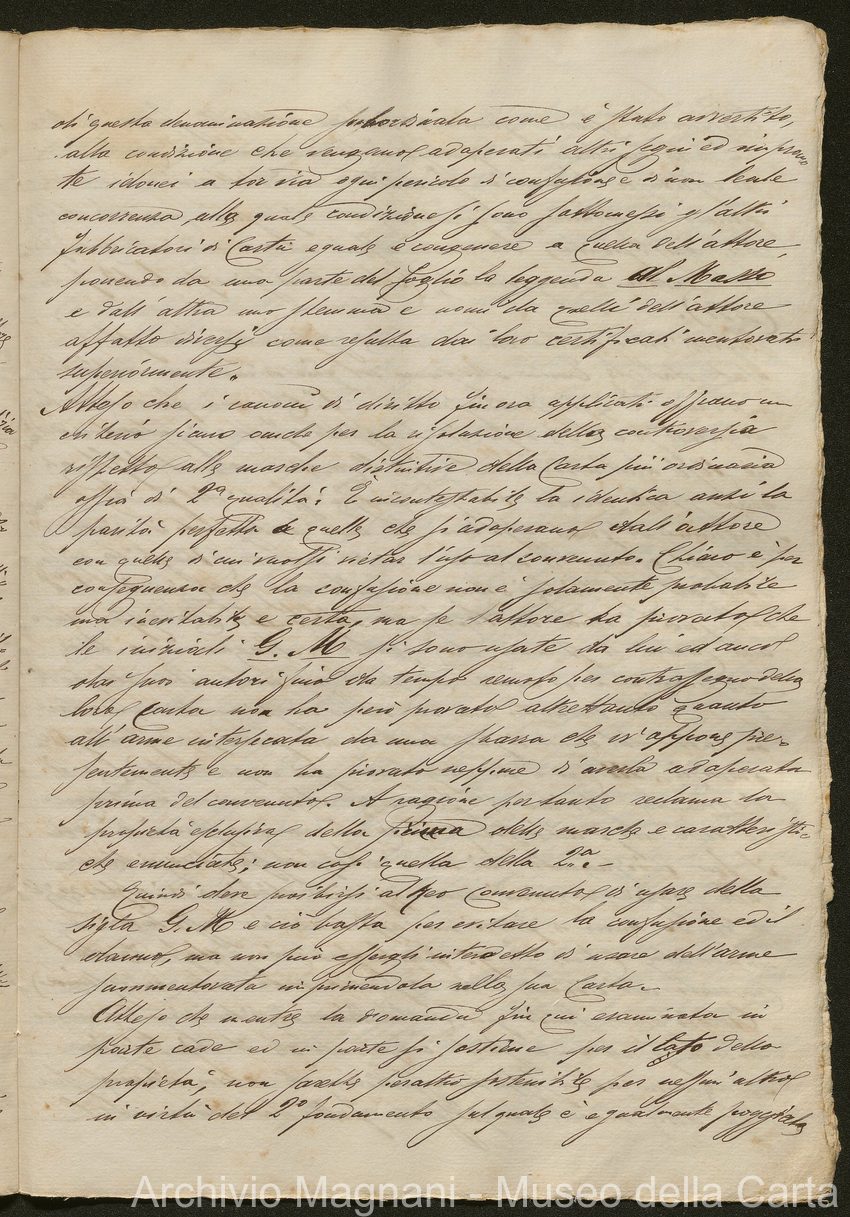 di questa denominazione subordinata come è stato avvertito,
alla condizione che vengano adoperati altri segni ed impron
te idonei a tor via ogni pericolo di confusione e di non leale
concorrenza, alla quale condizione si sono sottomessi gl'altri
fabbricatori di Carta eguale e congenere a quella dell'attore
ponendo da una parte del foglio la leggenda al Masso
e dall'altra uno stemma e nomi da quelli dell'attore
affatto diversi come resulta dai loro certificati mentovati
superiormente.
Atteso che i canoni di diritto fin ora applicati offrano un
criterio sicuro anche per la risoluzione della controversia
rispetto alle marche distintive della Carta più ordinaria
ossia di 2a qualità: È incontestabile la identica anzi la
parità perfetta di quelle che si adoperano dall'attore
con quelle di cui vuolsi vietar l'uso al convenuto. Chiaro è per
conseguenza che la confusione non è solamente probabile
ma inevitabile e certa, ma se l'attore ha provato che
le iniziali G. M. si sono usate da lui ed anco
dai suoi autori fino da tempo remoto per contrassegno della
loro Carta non ha però provato altrettanto quanto
all'arme intersecata da una sbarra che vi appone pre-
sentemente e non ha provato neppure di averla adoperata
prima del convenuto. A ragione pertanto reclama la
proprietà esclusiva della prima delle marche e caratteristi-
che enunciate; non così quella della 2.a -
Quindi deve proibirsi al Reo Convenuto di usare della
sigla G. M e ciò basta per evitare la confusione ed il
danno, ma non può essergli interdetto di usare dell'arme
summentovata imprimendola nella sua Carta. -
Atteso che mentre la domanda fin qui esaminata in
parte cade ed in parte si sostiene per il lato della
proprietà, non sarebbe peraltro sostenibile per nessun altro
in virtù del 2o fondamento sul quale è egualmente poggiata
Archivio Magnani - Museo della Carta